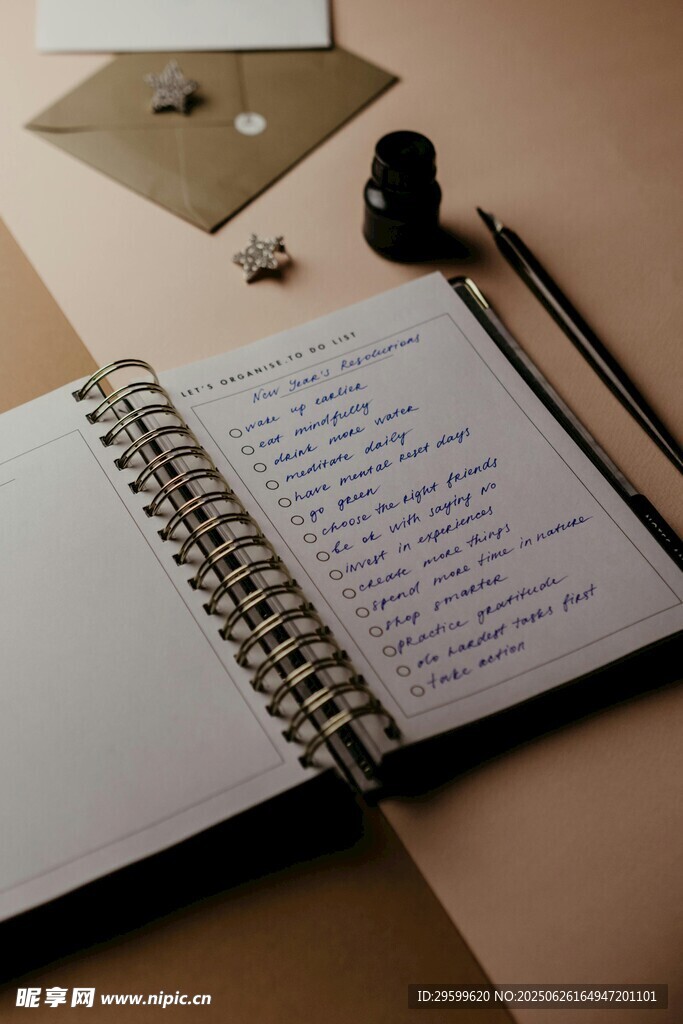 LET'S ORGANISE. TO DO LIST
New Year's Resolutions
wake up earlier
eat mindfully
drink more water
meditate daily
have mental reset days
go green
choose the right friends
be ok with saying NO
invest in experiences
create more things
spend more time in nature
shop smarter
practice gratitude
do hardest tasks first
take action
昵享网 www.nipic.cn
ID:29599620 NO:20250626164947201101